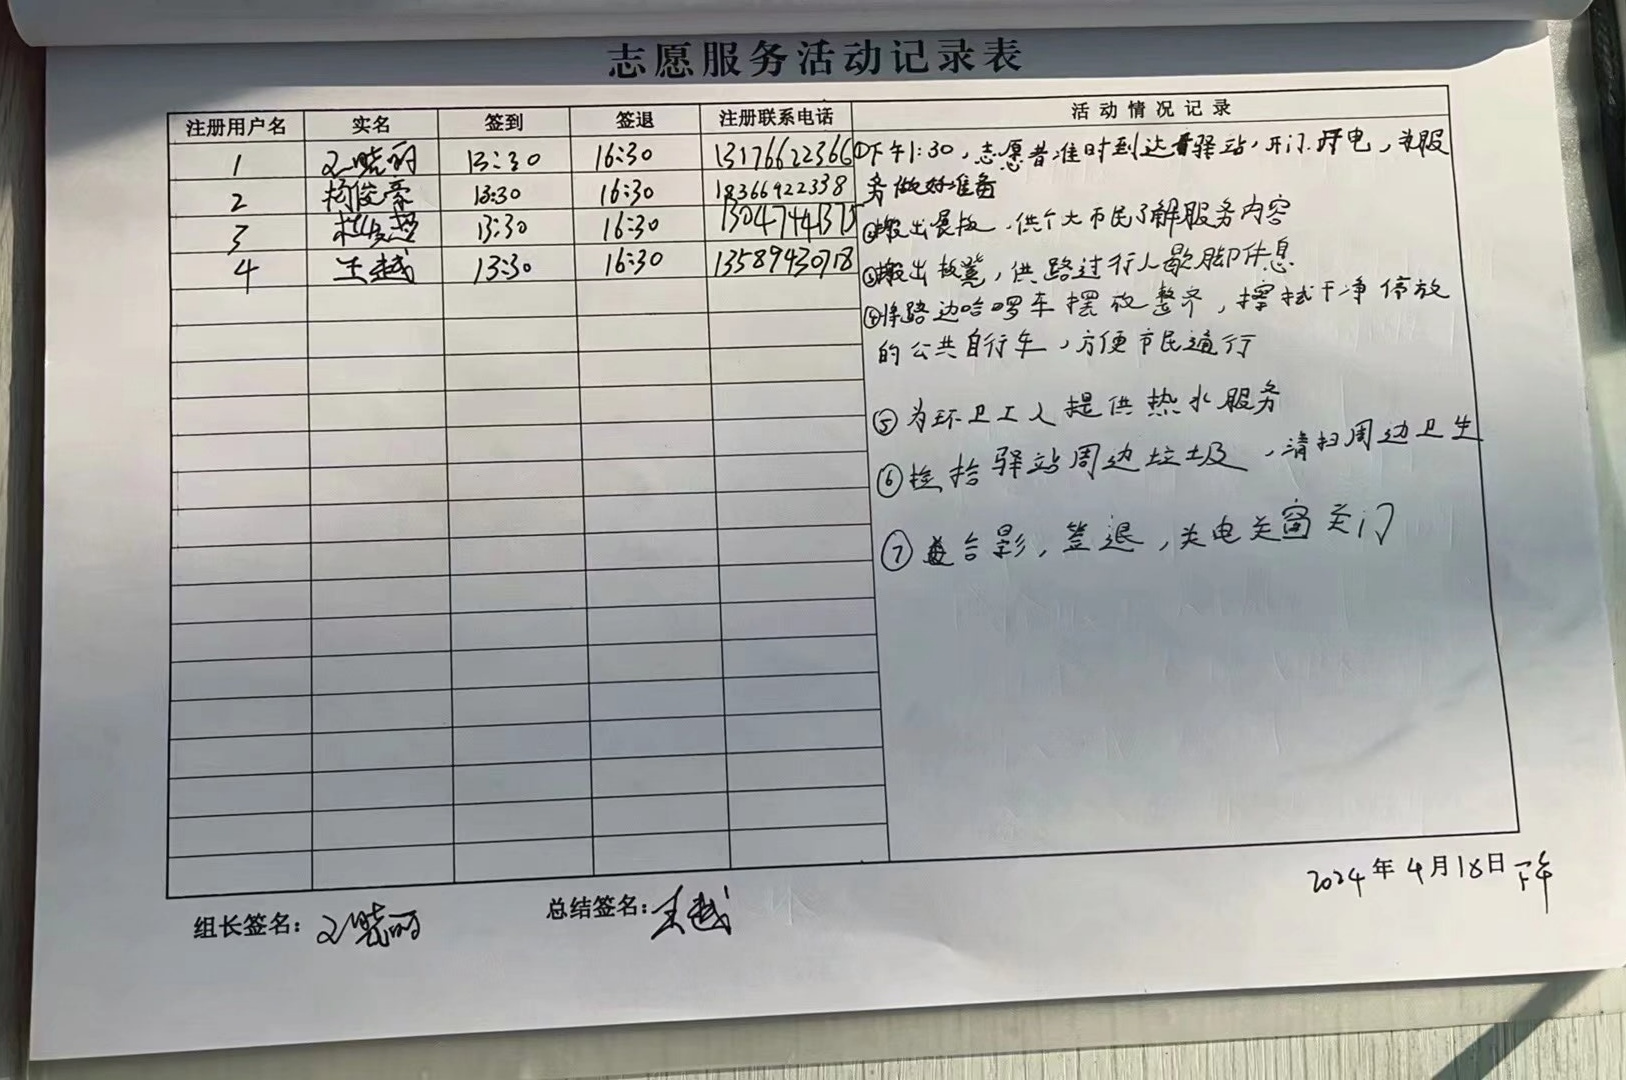 志愿服务活动记录表
注册用户名 实名 签到 签退 注册联系电话 活动情况记录
1 晓丽 13:30 16:30 13176622366
2 杨俊豪 13:30 16:30 18366922338
3 13:30 16:30
4 王越 13:30 16:30 13589430918
①下午1:30,志愿者准时到达驿站,开门.开电,为服
务做好准备
②搬出展板,供个大市民了解服务内容
③搬出板凳,供路过行人歇脚休息
④将路边哈啰车摆放整齐,擦拭干净停放
的公共自行车,方便市民通行
⑤为环卫工人提供热水服务
⑥捡拾驿站周边垃圾,清扫周边卫生
⑦合影,签退,关电关窗关门
2024年4月18日下午
组长签名: 晓丽 总结签名: 王越